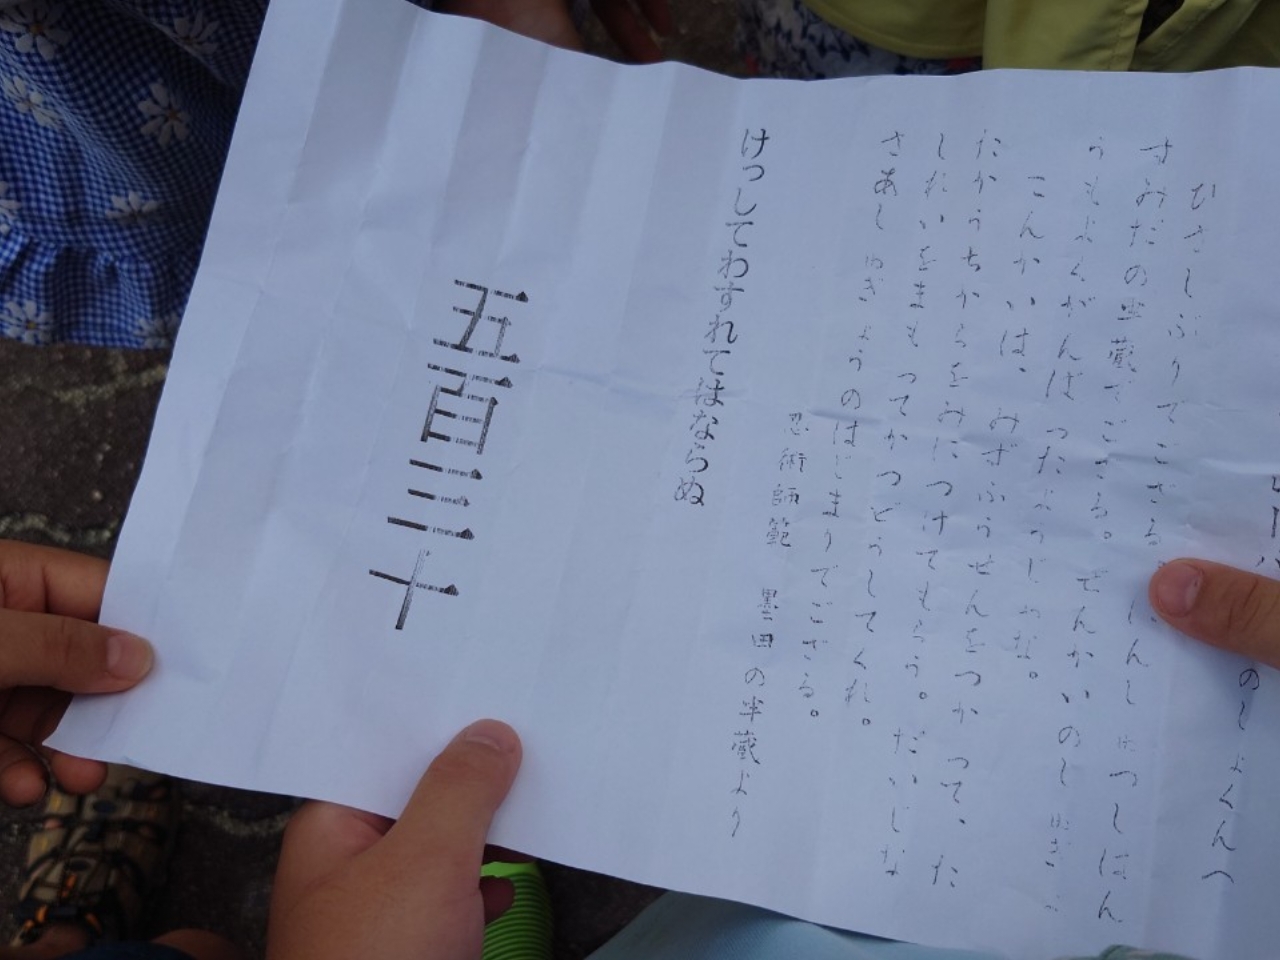 のしょくんへ
ひさしぶりでござる。にんじゅつしはん
すみだの半蔵でござる。ぜんかいのしゅぎょ
うもよくがんばったようじゃな。
こんかいは、みずふうせんをつかって、た
たかうちからをみにつけてもらう。だいじな
しれいをまもってかつどうしてくれ。
さあしゅぎょうのはじまりでござる。
忍術師範　墨田の半蔵より
けっしてわすれてはならぬ
五百三十